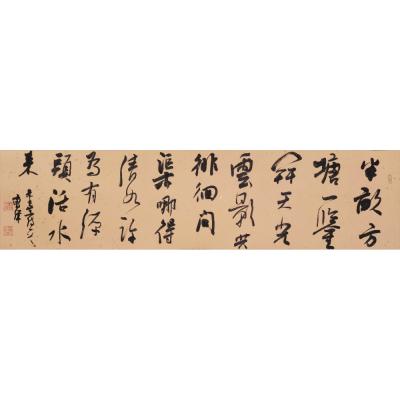 半畝方
塘一鑒
開天光
雲影共
徘徊問
渠哪得
清如許
為有源
頭活水
來